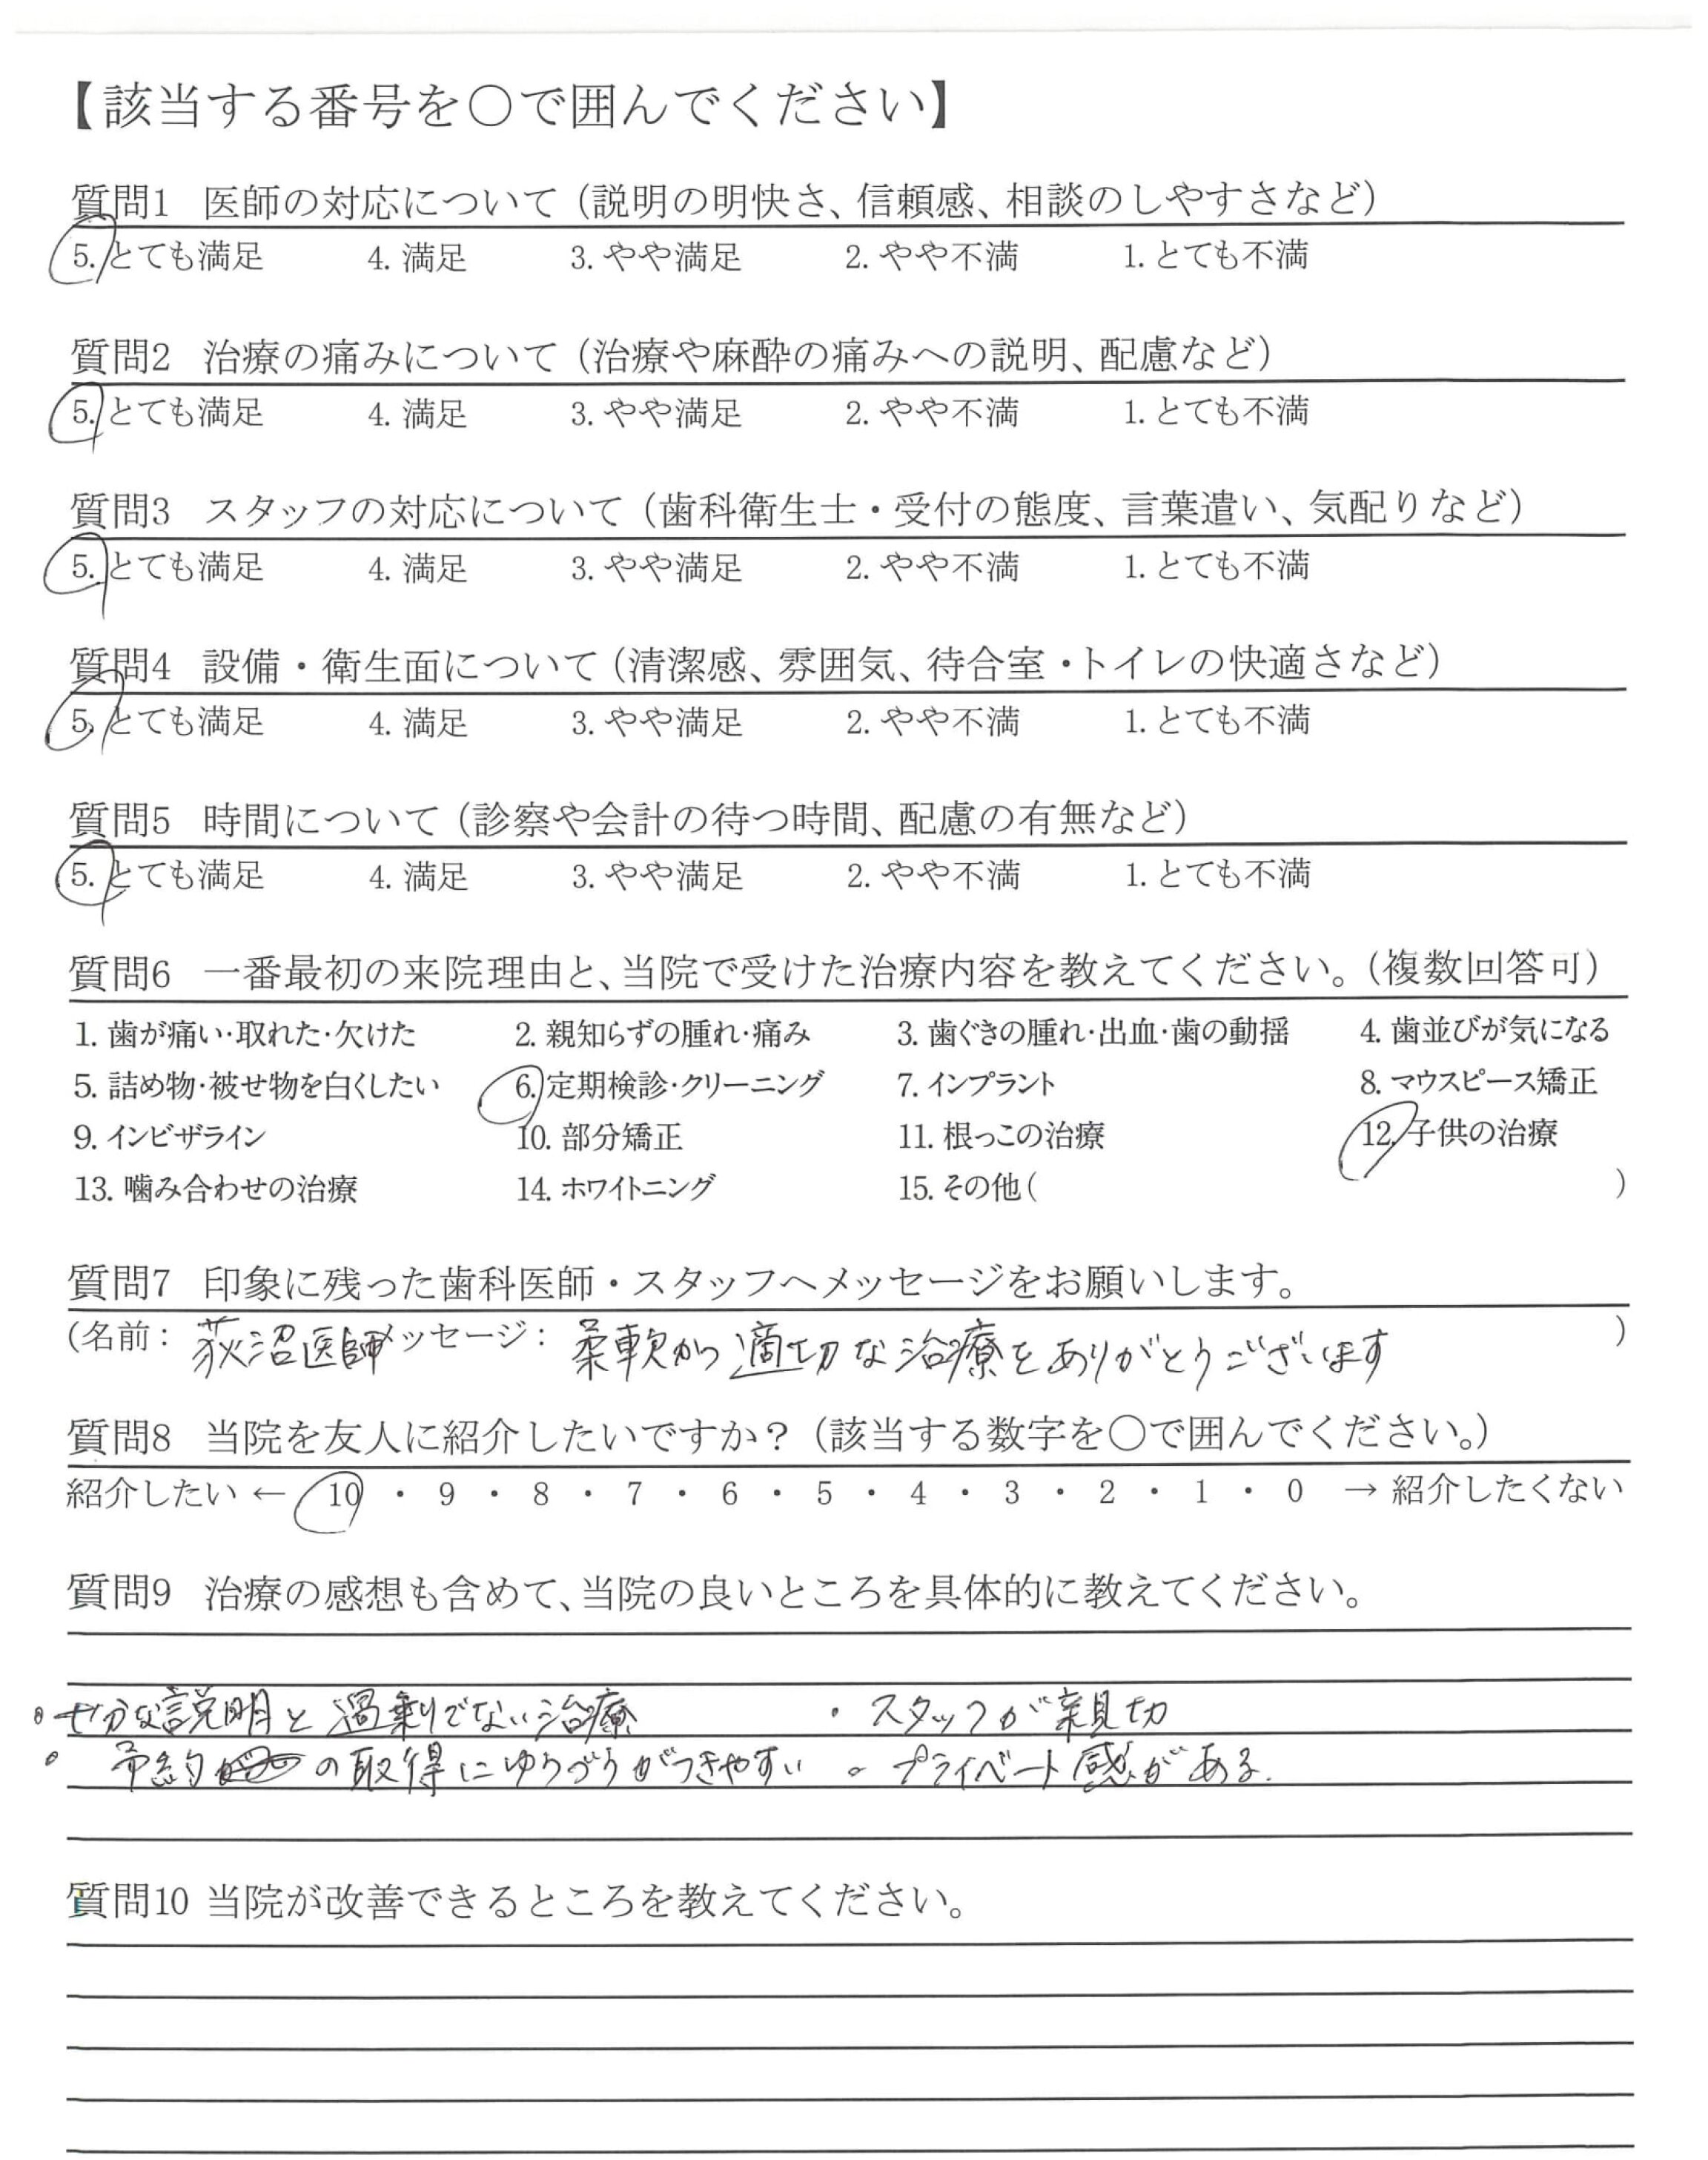 【該当する番号を○で囲んでください】
質問1 医師の対応について（説明の明快さ、信頼感、相談のしやすさなど）
5. とても満足 4. 満足 3. やや満足 2. やや不満 1. とても不満
質問2 治療の痛みについて（治療や麻酔の痛みへの説明、配慮など）
5. とても満足 4. 満足 3. やや満足 2. やや不満 1. とても不満
質問3 スタッフの対応について（歯科衛生士・受付の態度、言葉遣い、気配りなど）
5. とても満足 4. 満足 3. やや満足 2. やや不満 1. とても不満
質問4 設備・衛生面について（清潔感、雰囲気、待合室・トイレの快適さなど）
5. とても満足 4. 満足 3. やや満足 2. やや不満 1. とても不満
質問5 時間について（診察や会計の待つ時間、配慮の有無など）
5. とても満足 4. 満足 3. やや満足 2. やや不満 1. とても不満
質問6 一番最初の来院理由と、当院で受けた治療内容を教えてください。（複数回答可）
1. 歯が痛い・取れた・欠けた 2. 親知らずの腫れ・痛み 3. 歯ぐきの腫れ・出血・歯の動揺 4. 歯並びが気になる
5. 詰め物・被せ物を白くしたい 6. 定期検診・クリーニング 7. インプラント 8. マウスピース矯正
9. インビザライン 10. 部分矯正 11. 根っこの治療 12. 子供の治療
13. 噛み合わせの治療 14. ホワイトニング 15. その他（ ）
質問7 印象に残った歯科医師・スタッフへメッセージをお願いします。
（名前： 荻沼医師 メッセージ： 柔軟かつ適切な治療をありがとうございます ）
質問8 当院を友人に紹介したいですか？（該当する数字を○で囲んでください。）
紹介したい ← 10 ・ 9 ・ 8 ・ 7 ・ 6 ・ 5 ・ 4 ・ 3 ・ 2 ・ 1 ・ 0 → 紹介したくない
質問9 治療の感想も含めて、当院の良いところを具体的に教えてください。
・十分な説明と過剰でない治療 ・スタッフが親切
・予約の取得にゆうづうがつきやすい ・プライベート感がある.
質問10 当院が改善できるところを教えてください。